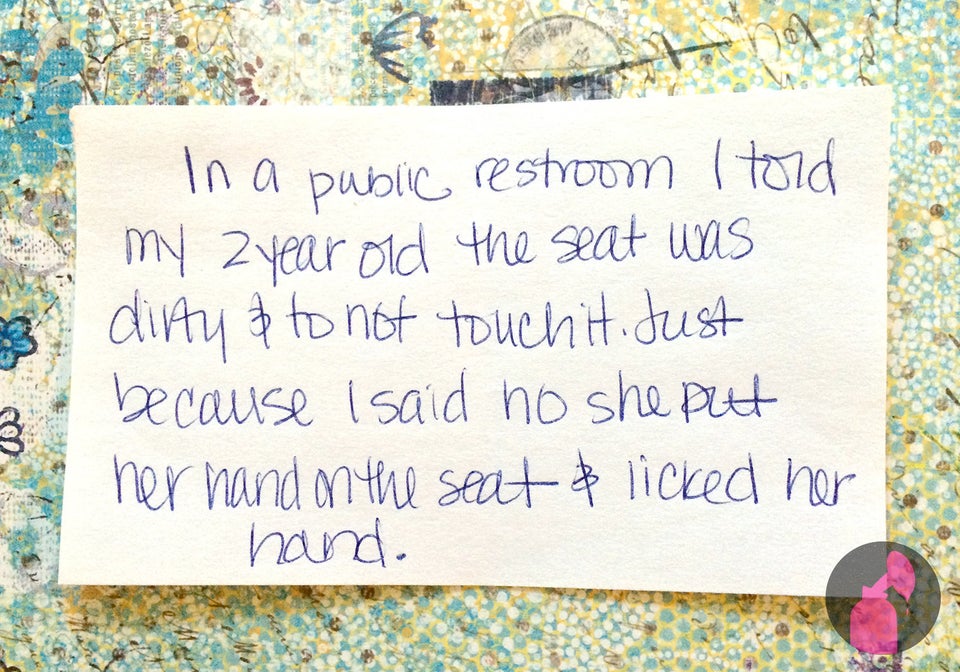 In a public restroom I told
my 2 year old the seat was
dirty & to not touch it. Just
because I said no she put
her hand on the seat & licked her
hand.